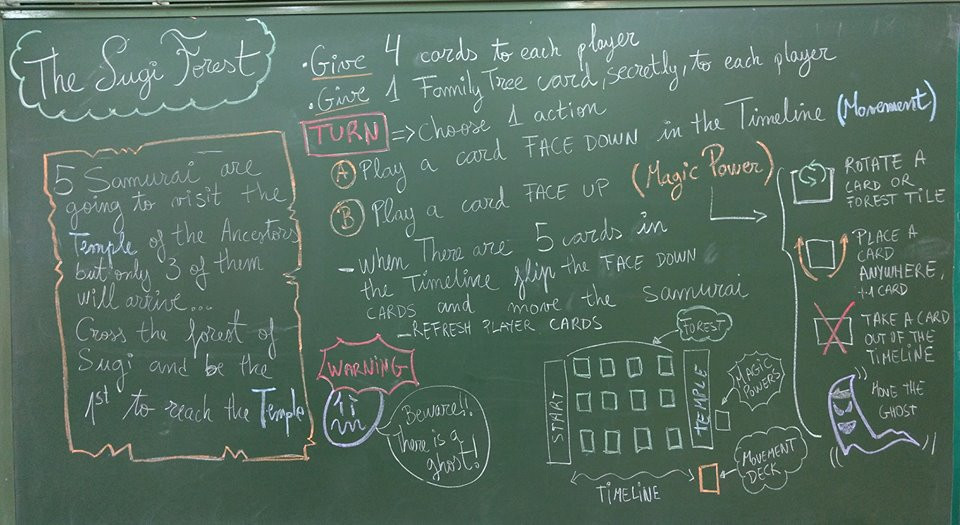 The Sugi Forest
5 Samurai are
going to visit the
Temple of the Ancestors
but only 3 of them
will arrive...
Cross the forest of
Sugi and be the
1st to reach the Temple
. Give 4 cards to each player
. Give 1 Family Tree card, secretly, to each player
TURN => Choose 1 action
A Play a card FACE DOWN in the Timeline (Movement)
B Play a card FACE UP (Magic Power)
- When There are 5 cards in
the Timeline flip the FACE DOWN
CARDS and move the samurai
- REFRESH PLAYER CARDS
WARNING
Beware!!
there is a
ghost!
START
FOREST
TEMPLE
MAGIC
POWERS
MOVEMENT
DECK
TIMELINE
ROTATE A
CARD OR
FOREST TILE
PLACE A
CARD
ANYWHERE,
+1 CARD
TAKE A CARD
OUT OF THE
TIMELINE
MOVE THE
GHOST